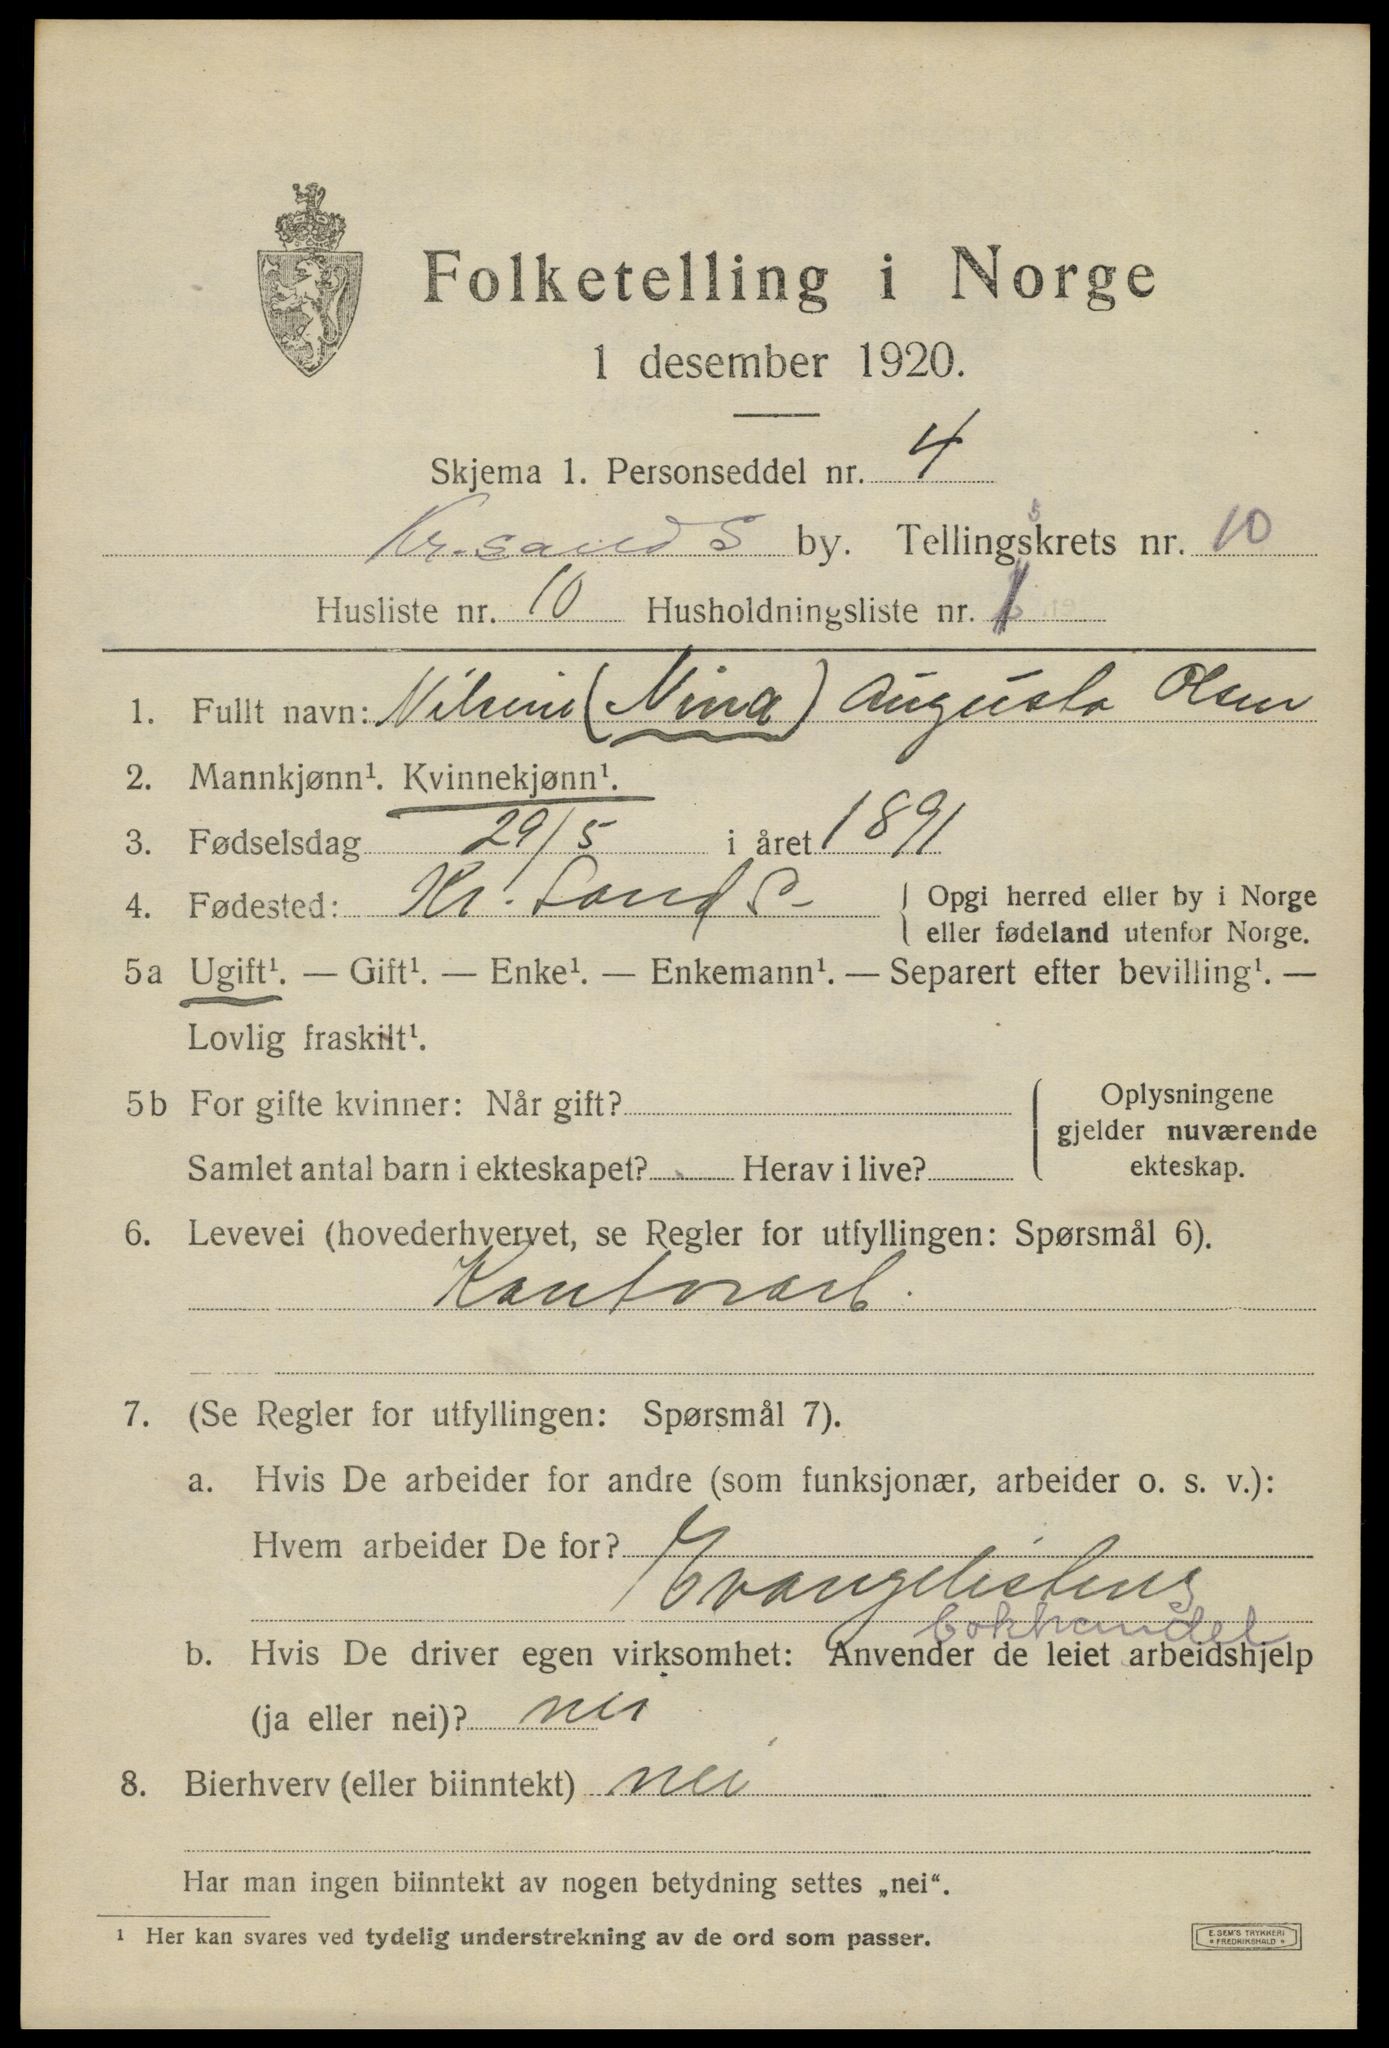 Folketelling i Norge
1 desember 1920.
Skjema 1. Personseddel nr. 4
Kr.sand S by. Tellingskrets nr. 10
Husliste nr. 10 Husholdningsliste nr. 1
1. Fullt navn: Nilsine (Nina) Augusta Olsen
2. Mannkjønn¹. Kvinnekjønn¹.
3. Fødselsdag 29/5 i året 1891
4. Fødested: Kr. Sand S { Opgi herred eller by i Norge
eller fødeland utenfor Norge.
5a Ugift¹. — Gift¹. — Enke¹. — Enkemann¹. — Separert efter bevilling¹. —
Lovlig fraskilt¹.
5b For gifte kvinner: Når gift? { Oplysningene
gjelder nuværende
Samlet antal barn i ekteskapet? Herav i live? ekteskap.
6. Levevei (hovederhvervet, se Regler for utfyllingen: Spørsmål 6).
Kontorarb.
7. (Se Regler for utfyllingen: Spørsmål 7).
a. Hvis De arbeider for andre (som funksjonær, arbeider o. s. v.):
Hvem arbeider De for?
Evangelistens
bokhandel
b. Hvis De driver egen virksomhet: Anvender de leiet arbeidshjelp
(ja eller nei)? nei
8. Bierhverv (eller biinntekt) nei
Har man ingen biinntekt av nogen betydning settes „nei“.
¹ Her kan svares ved tydelig understrekning av de ord som passer.
E. SEM'S TRYKKERI
* FREDRIKSHALD *